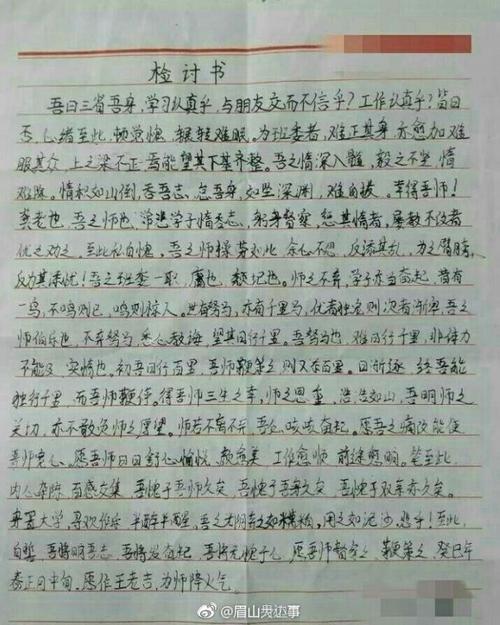 检讨书
吾曰三省吾身,学习认真乎,与朋友交而不信乎?工作认真乎?皆曰
否,心绪至此,惭觉愧,辗转难眠,为班委者,难正其身,亦愈加难
服其众,上之梁不正,焉能望其下基齐整。吾之情深入髓,毅之不坚,情
难除。情积如山倒,吞吾志,怠吾身,如坠深渊,难自拔。幸得吾师!
龚老也,吾之师也,常悲学子情吞志,躬身督察,怒其情者,屡教不改者
优之劝之,至此私自愧,吾之师操劳如此,余心不思,反添其乱,为之
反为其添忧!吾之班委一职,庸也,
师之不弃,学子亦当奋起,昔有
一鸟,不鸣则已,鸣则惊人。世有驽马,亦有千里马,优者独
则次者
吾之
师伯乐也,不弃驽马,悉心教诲,望其日行千里。吾驽马也,难日行千里,非体力
不能及,实惰也。初吾日行百里,吾师鞭策之,则又存百里。日渐逐,终吾能
独行千里,而吾师鞭伴。得吾师三生之幸,师之恩重,浩浩如山,吾明师之
关切,亦不敢负师之厚望。师若不离不弃,吾必
奋起。愿吾之痛改能使
吾师宽心,愿吾师日日舒心愉悦,
工作愈顺,前途愈明。笔至此,
内心杂陈,百感交集,吾愧于吾师久矣,吾愧于吾身久矣,吾愧于双亲亦久矣。
大学,寻欢作乐,半醉半醒,吾之大
之如
,用之如泥沙,悲乎!至此,
自誓,吾将明吾志,吾将发奋起,吾将无愧于心,愿吾师督察之,鞭策之,癸巳年
春正月中旬,愿作王老吉,为师降火气。
@眉山男边事